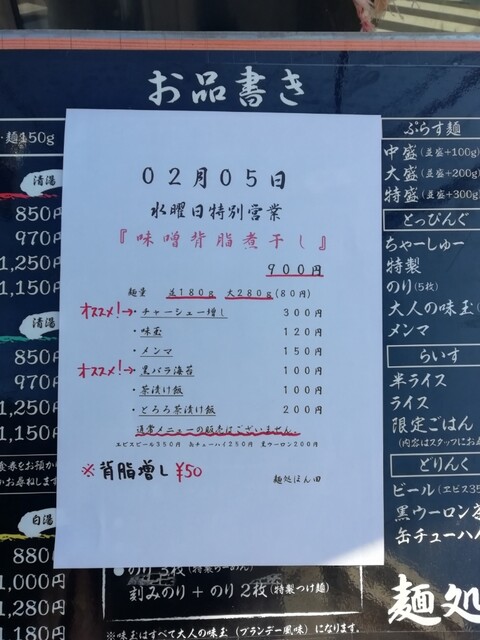 お品書き
・麺150g
清湯
850円
970円
1,250円
1,150円
清湯
850円
970円
1,250円
1,150円
白湯
880円
1,000円
1,280円
1,180円
02月05日
水曜日特別営業
『味噌背脂煮干し』
900円
麺量 並180g 大280g(80円)
オススメ!→・チャーシュー増し 300円
・味玉 120円
・メンマ 150円
オススメ!→・黒バラ海苔 100円
・茶漬け飯 100円
・とろろ茶漬け飯 200円
通常メニューの販売はございません。
ヱビスビール350円 缶チューハイ250円 黒ウーロン200円
※背脂増し¥50
麺処ほん田
ぷらす麺
中盛(並盛+100g)
大盛(並盛+200g)
特盛(並盛+300g)
とっぴんぐ
ちゃーしゅー
特製
のり(5枚)
大人の味玉
メンマ
らいす
半ライス
ライス
限定ごはん
(内容はスタッフにお
どりんく
ビール(ヱビス35
黒ウーロン
缶チューハイ
●のり3枚(特製らーめん)
刻みのり+のり2枚(特製つけ麺)
※味玉はすべて大人の味玉(ブランデー風味)になります。
麺処